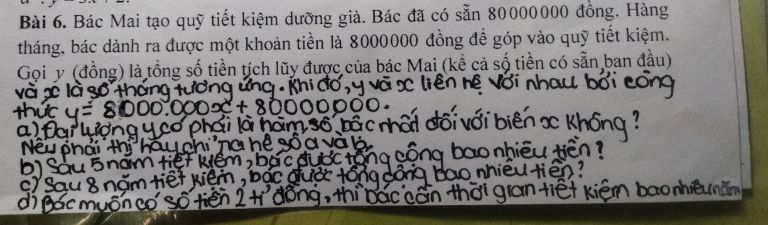 Bài 6. Bác Mai tạo quỹ tiết kiệm dưỡng già. Bác đã có sẵn 80000000 đồng. Hàng
tháng, bác dành ra được một khoản tiền là 8000000 đồng để góp vào quỹ tiết kiệm.
Gọi y (đồng) là tổng số tiền tích lũy được của bác Mai (kể cả số tiền có sẵn ban đầu)
và x là số tháng tương ứng. Khi đó, y và x liên hệ với nhau bởi công
thức y = 8000.000x + 80000000.
a) Đại lượng y có phải là hàm số bậc nhất đối với biến x không?
Nếu phải thì hãy chỉ ra hệ số a và b.
b) Sau 5 năm tiết kiệm, bác được tổng cộng bao nhiêu tiền?
c) Sau 8 năm tiết kiệm, bác được tổng cộng bao nhiêu tiền?
d) Bác muốn có số tiền 2 tỉ đồng, thì bác cần thời gian tiết kiệm bao nhiêu năm